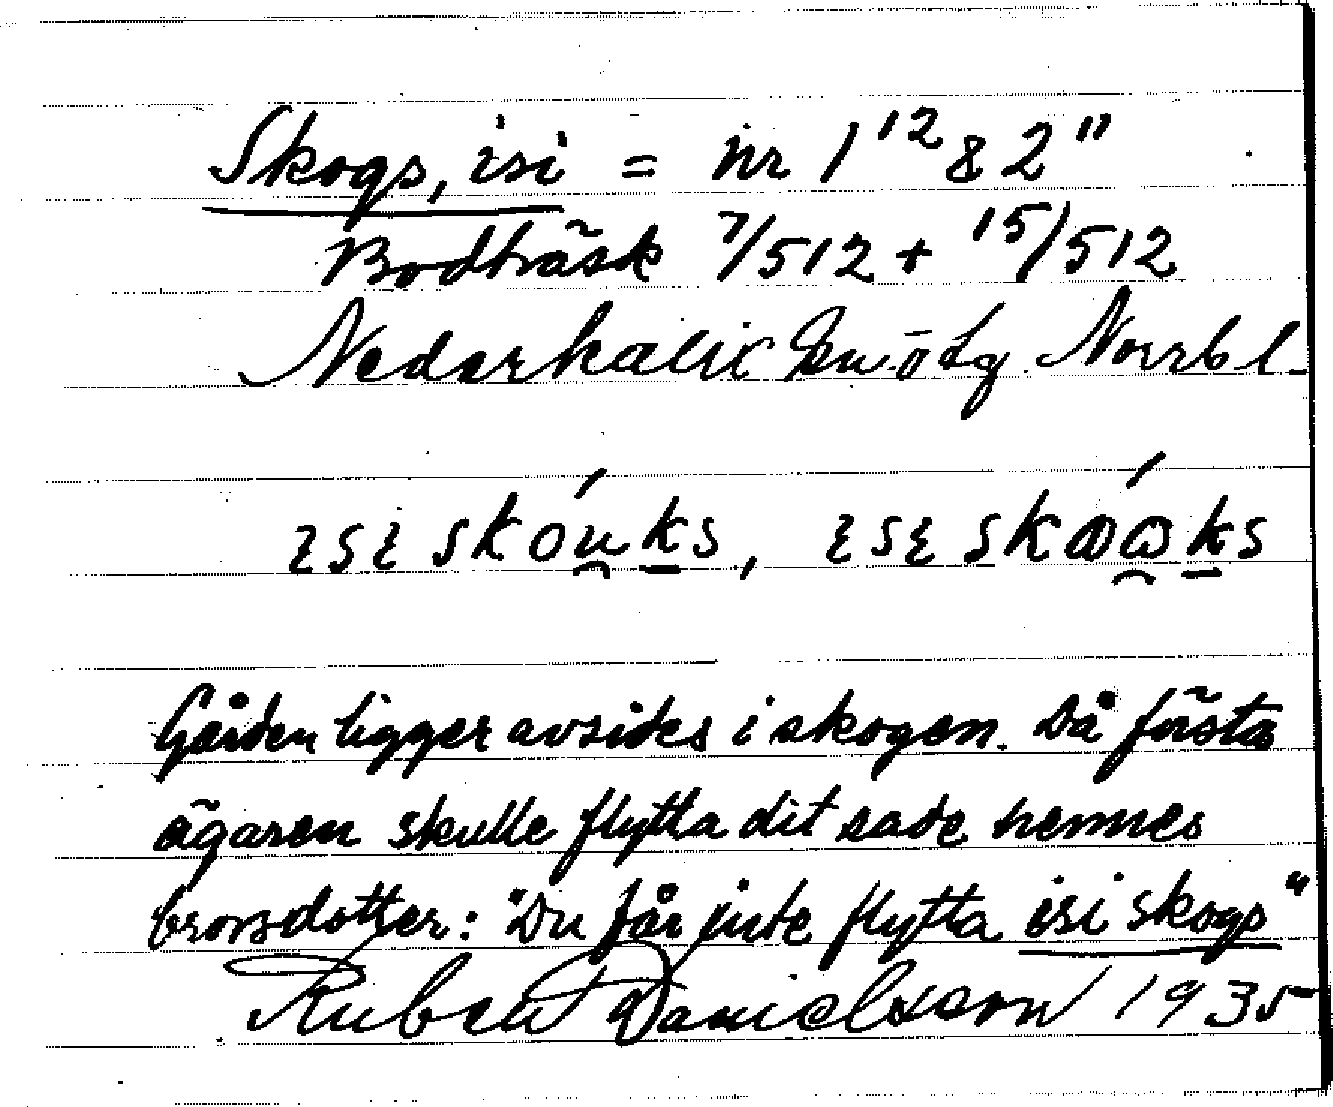 Skogs, isi = nr 1¹² & 2¹¹
Bodträsk 7/512 + 15/512
Nederkalix sn o tg Norrb l.
ɩsɩ skóu̯ks, ɩsɩ skɷ́ɷ̯ks
Gården ligger avsides i skogen. Då första
ägaren skulle flytta dit sade hennes
brorsdotter: "Du får inte flytta isi skogs"
Ruben Danielsson 1935